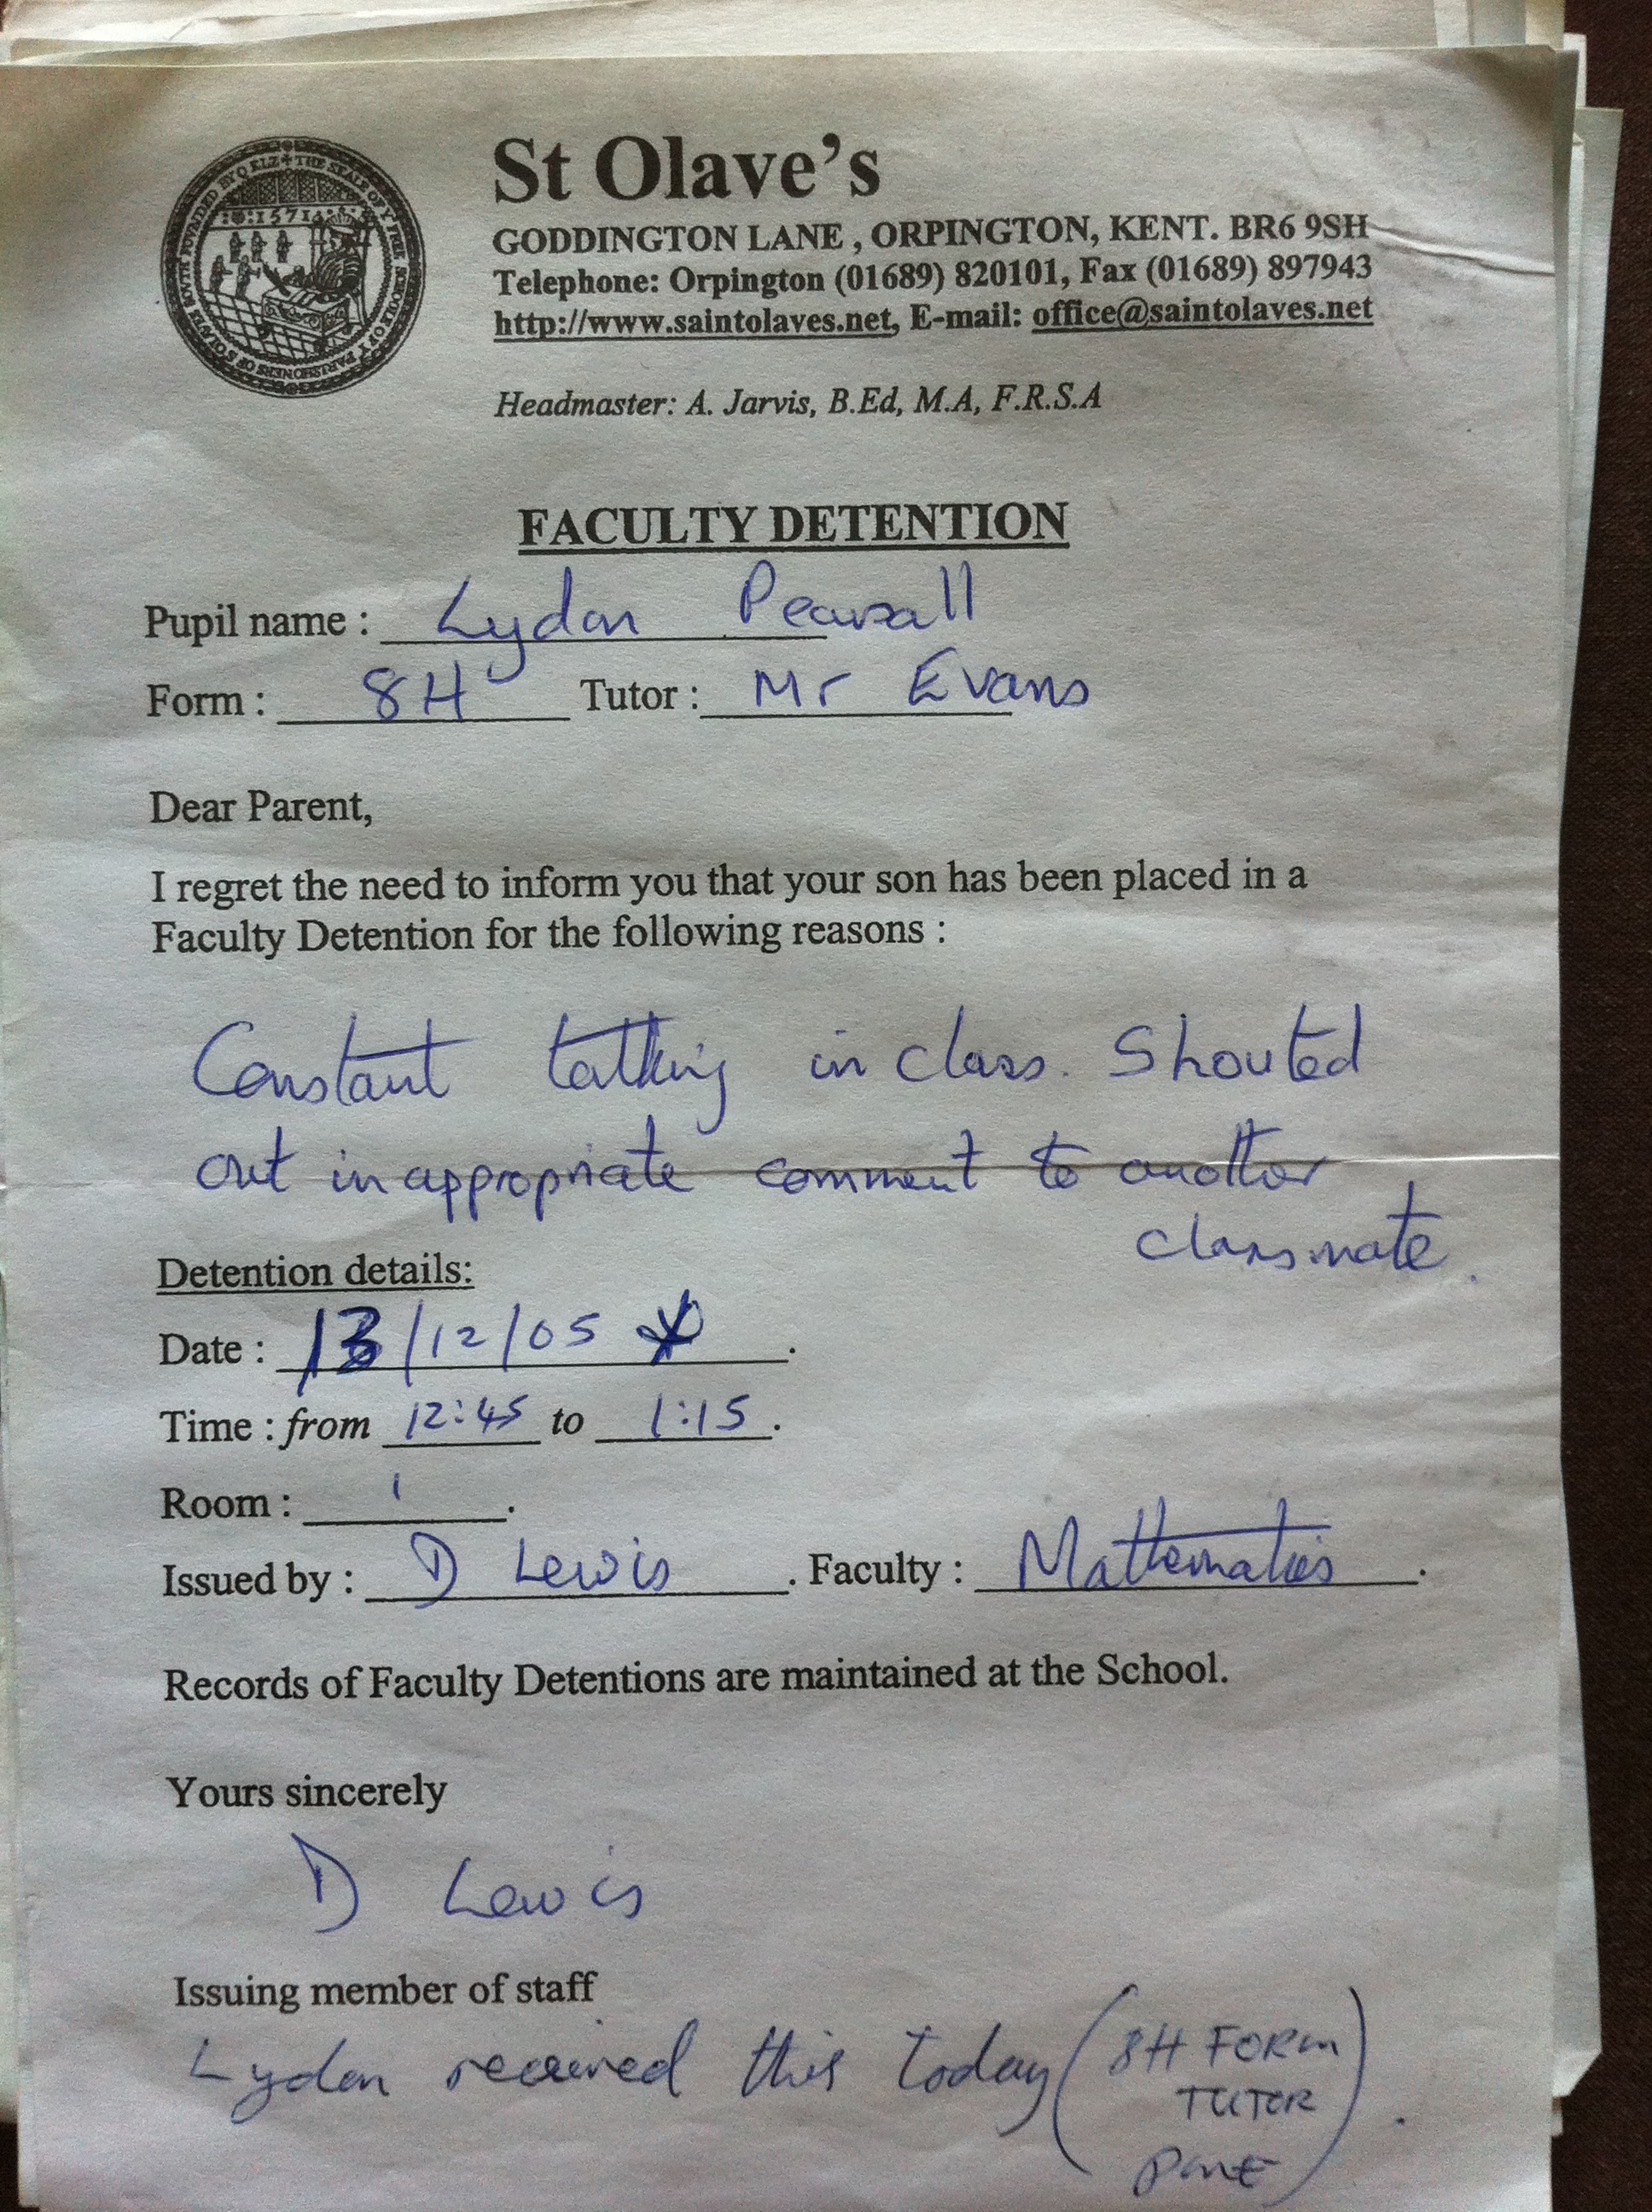 St Olave's
GODDINGTON LANE , ORPINGTON, KENT. BR6 9SH
Telephone: Orpington (01689) 820101, Fax (01689) 897943
http://www.saintolaves.net, E-mail: office@saintolaves.net
Headmaster: A. Jarvis, B.Ed, M.A, F.R.S.A
FACULTY DETENTION
Pupil name : Lydon Pearsall
Form : 8H Tutor : Mr Evans
Dear Parent,
I regret the need to inform you that your son has been placed in a
Faculty Detention for the following reasons :
Constant talking in class. Shouted
out inappropriate comment to another
classmate.
Detention details:
Date : 13/12/05 * .
Time : from 12:45 to 1:15 .
Room : 1 .
Issued by : D Lewis . Faculty : Mathematics .
Records of Faculty Detentions are maintained at the School.
Yours sincerely
D Lewis
Issuing member of staff
Lydon received this today (8H FORM
TUTOR